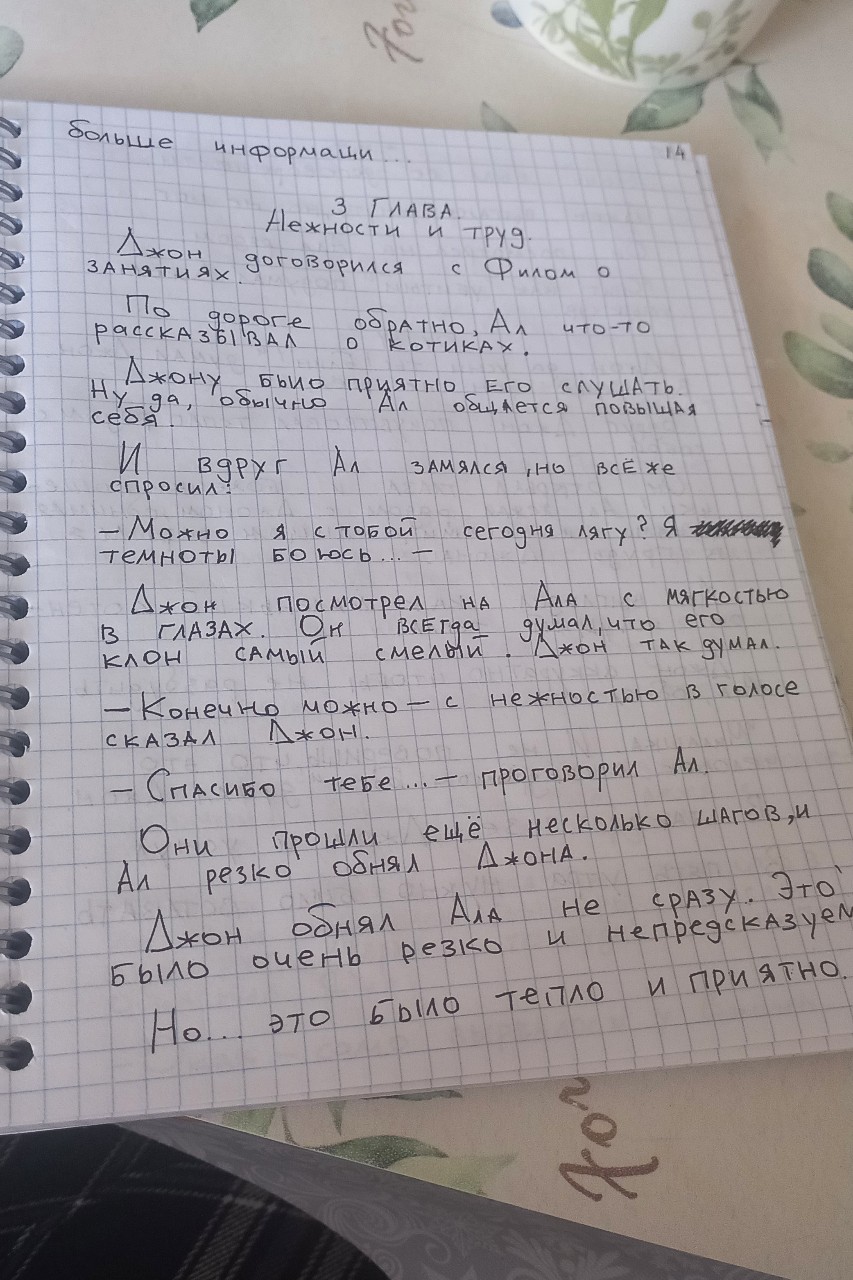 больше информаци...
14
3 ГЛАВА.
Нежности и труд.
Джон договорился с Филом о
занятиях.
По дороге обратно, Ал что-то
рассказывал о котиках.
Джону было приятно его слушать.
Ну да, обычно Ал общается повышая
себя.
И вдруг Ал замялся, но всё же
спросил:
– Можно я с тобой сегодня лягу? Я
темноты боюсь... –
Джон посмотрел на Ала с мягкостью
в глазах. Он всегда думал, что его
клон самый смелый. Джон так думал.
– Конечно можно – с нежностью в голосе
сказал Джон.
– Спасибо тебе... – проговорил Ал.
Они прошли ещё несколько шагов, и
Ал резко обнял Джона.
Джон обнял Ала не сразу. Это
было очень резко и непредсказуем
Но... это было тепло и приятно.